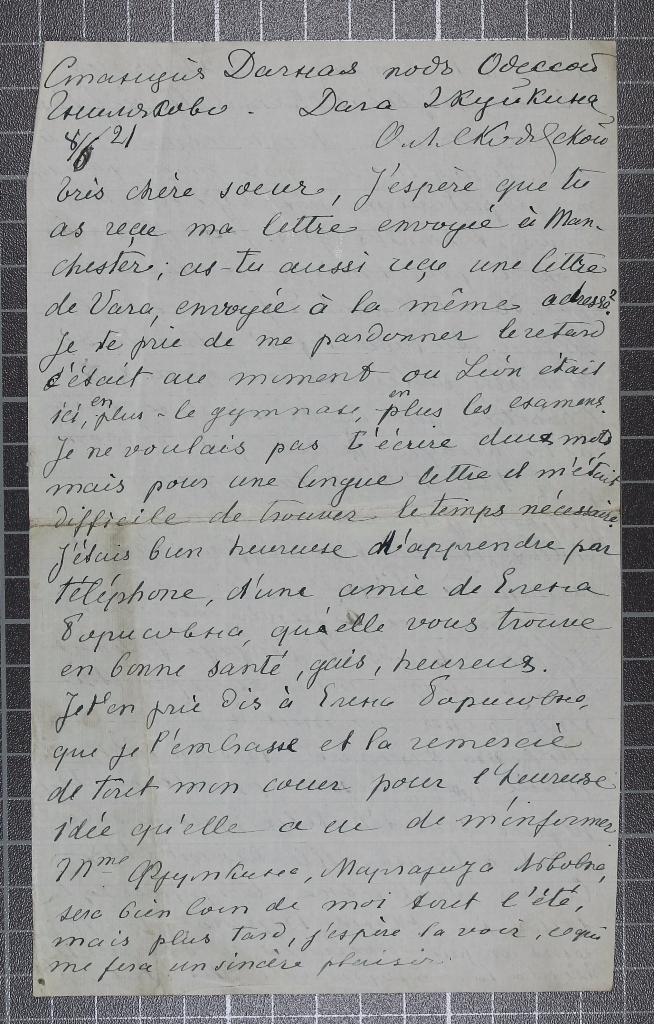 Станцiя Дачная подъ Одессой
Гниляково. Дача Якункина
8/6 21
très chère soeur, J'espère que tu
as reçu ma lettre envoyée à Man-
chester; as-tu aussi reçu une lettre
de Vara, envoyée à la même adresse?
Je te prie de me pardonner le retard
c'était au moment ou Léon était
ici, en plus - le gymnase, en plus les examens.
Je ne voulais pas t'écrire deux mots
mais pour une longue lettre il m'était
difficile de trouver le temps nécessaire.
J'étais bien heureuse d'apprendre par
téléphone, d'une amie de Елена
Борисовна, qu'elle vous trouve
en bonne santé, gais, heureux.
Je t'en prie dis à Елена Борисовна,
que je l'embrasse et la remercie
de tout mon coeur pour l'heureuse
idée qu'elle a eu de m'informer
Mme Фрумкина, Маргарита Львовна,
sera bien loin de moi tout l'été,
mais plus tard, j'espère la voir, ce qui
me fera un sincère plaisir.